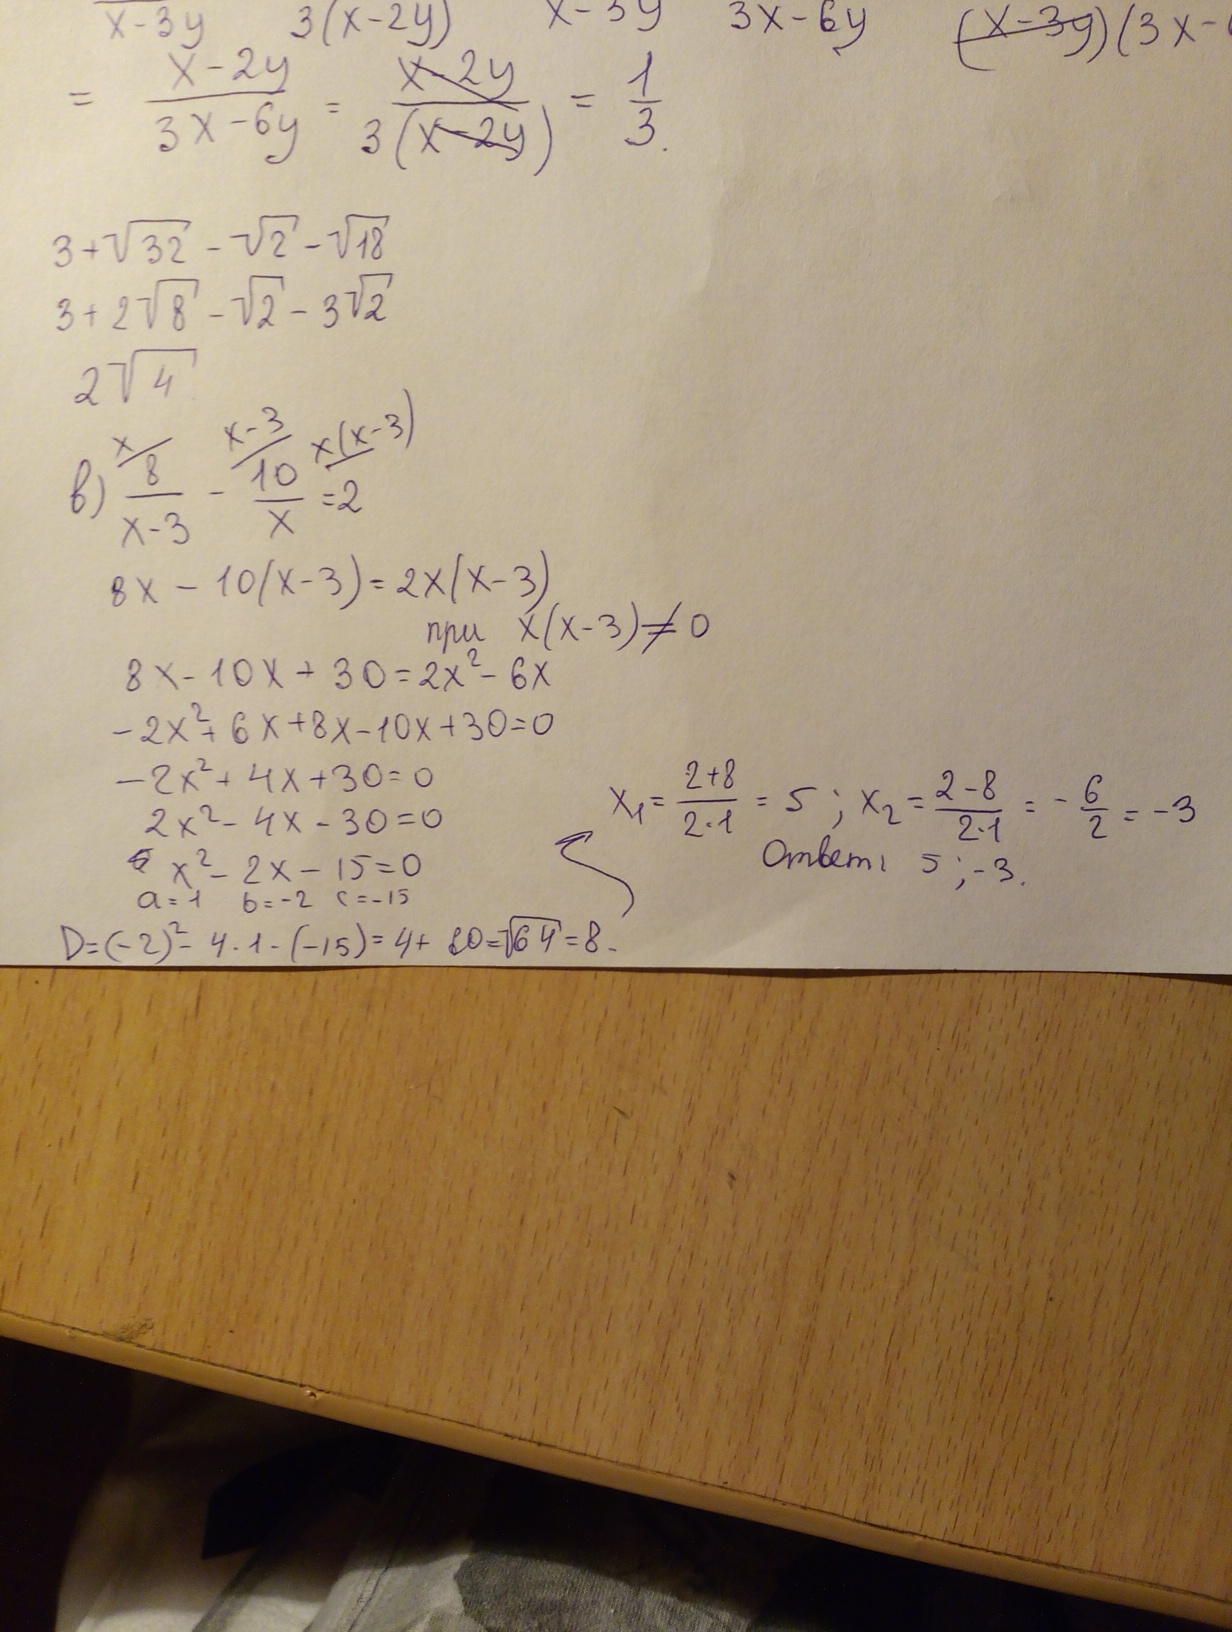 x-3y 3(x-2y) x-3y 3x-6y (x-3y)(3x-
= x-2y/3x-6y = x-2y/3(x-2y) = 1/3.
3+√32 - √2 - √18
3+2√8 - √2 - 3√2
2√4
x x-3 x(x-3)
в) 8/x-3 - 10/x = 2
8x - 10(x-3) = 2x(x-3)
при x(x-3)≠0
8x - 10x + 30 = 2x² - 6x
-2x² + 6x + 8x - 10x + 30 = 0
-2x² + 4x + 30 = 0
2x² - 4x - 30 = 0
x² - 2x - 15 = 0
a=1 b=-2 c=-15
D=(-2)² - 4·1·(-15) = 4+ 20=√64=8.
x₁ = 2+8/2·1 = 5; x₂ = 2-8/2·1 = -6/2 = -3
Ответ: 5; -3.